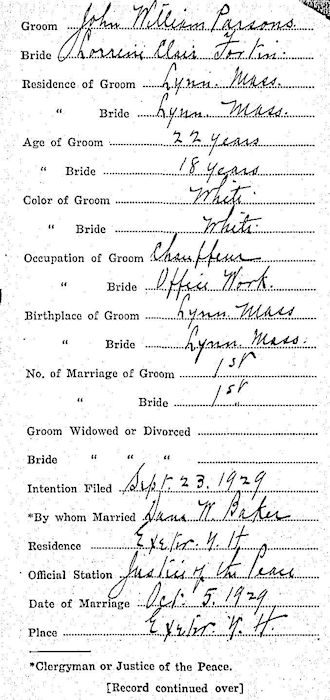 Groom John William Parsons
Bride Lorreine Clair Fortin.
Residence of Groom Lynn. Mass.
" Bride Lynn. Mass.
Age of Groom 22 years
" Bride 18 years
Color of Groom White.
" Bride White.
Occupation of Groom Chauffeur
" Bride Office Work.
Birthplace of Groom Lynn Mass
" Bride Lynn. Mass.
No. of Marriage of Groom 1st
" Bride 1st
Groom Widowed or Divorced
Bride " " "
Intention Filed Sept. 23. 1929
*By whom Married Dana W. Baker
Residence Exeter. N. H
Official Station Justice of the Peace
Date of Marriage Oct. 5. 1929
Place Exeter. N. H.
*Clergyman or Justice of the Peace.
[Record continued over]